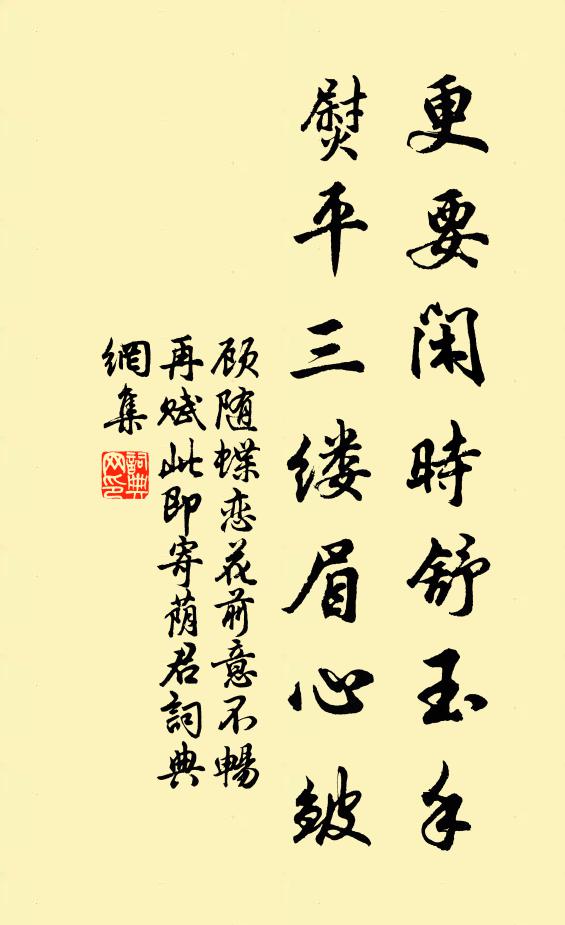 更要闲時舒玉手
熨平三缕眉心皱
顾随蝶恋花前意不暢
再赋此即寄荫君詞典
網集
詞典網印